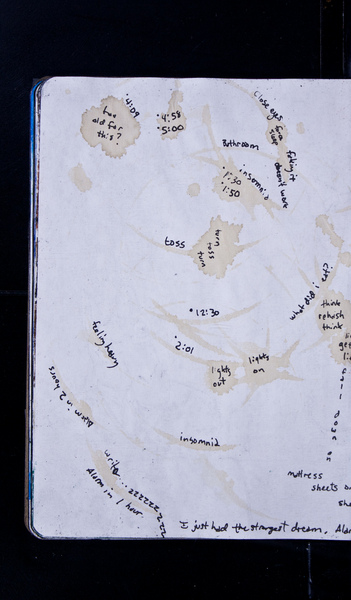 too
old for
this?
4:09
4:58
5:00
Close eyes for a
faking it
doesn't work
Bathroom
insomnia
1:30
1:50
toss
turn
toss
turn
what did i eat?
think
rehash
think
12:30
2:01
feeling heavy
lights
on
lights
out
Alarm in 2 hours
insomnia
write...zzzzzzzzz
Alarm in 1 hour
mattress
sheets
I just had the strangest dream.